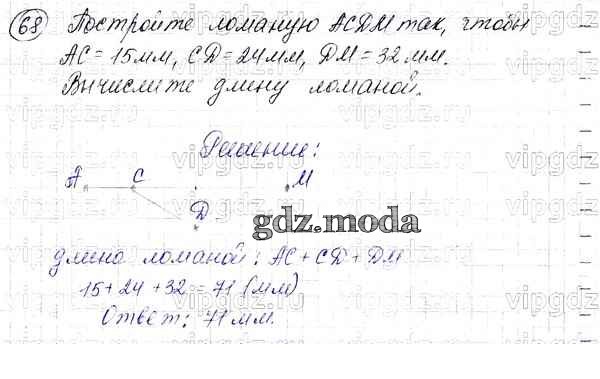 68 Постройте ломаную ACDM так, чтобы
AC = 15 мм, CD = 24 мм, DM = 32 мм.
Вычислите длину ломаной.
Решение:
A C M
D
gdz.moda
длина ломаной: AC + CD + DM
15 + 24 + 32 = 71 (мм)
Ответ: 71 мм.
vipgdz.ru